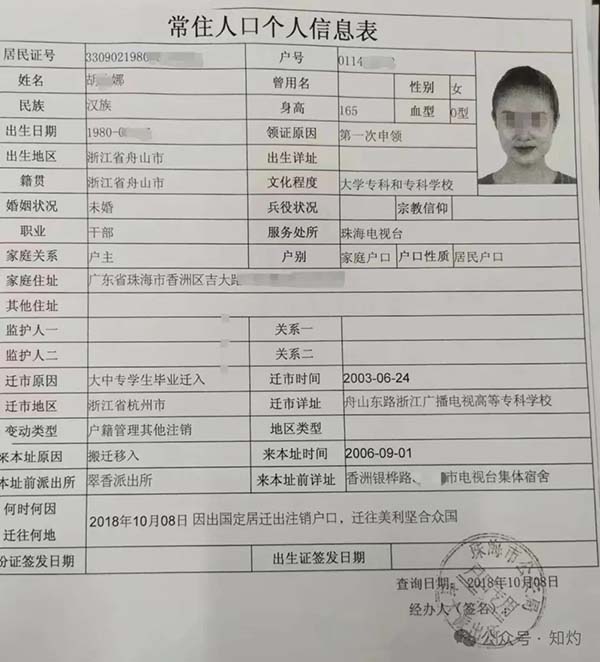 常住人口个人信息表
居民证号 3309021980 户号 0114
姓名 胡 娜 曾用名 性别 女
民族 汉族 身高 165 血型 O型
出生日期 1980-0 领证原因 第一次申领
出生地区 浙江省舟山市 出生详址
籍贯 浙江省舟山市 文化程度 大学专科和专科学校
婚姻状况 未婚 兵役状况 宗教信仰
职业 干部 服务处所 珠海电视台
家庭关系 户主 户别 家庭户口 户口性质 居民户口
家庭住址 广东省珠海市香洲区吉大路
其他住址
监护人一 关系一
监护人二 关系二
迁市原因 大中专学生毕业迁入 迁市时间 2003-06-24
迁市地区 浙江省杭州市 迁市详址 舟山东路浙江广播电视高等专科学校
变动类型 户籍管理其他注销 地区类型
来本址原因 搬迁移入 来本址时间 2006-09-01
来本址前派出所 翠香派出所 来本址前详址 香洲银桦路、 市电视台集体宿舍
何时何因
迁往何地 2018年10月08日 因出国定居迁出注销户口，迁往美利坚合众国
份证签发日期 出生证签发日期
珠海市公安局
查询日期：2018年10月08日
经办人（签名）：
公众号·知灼